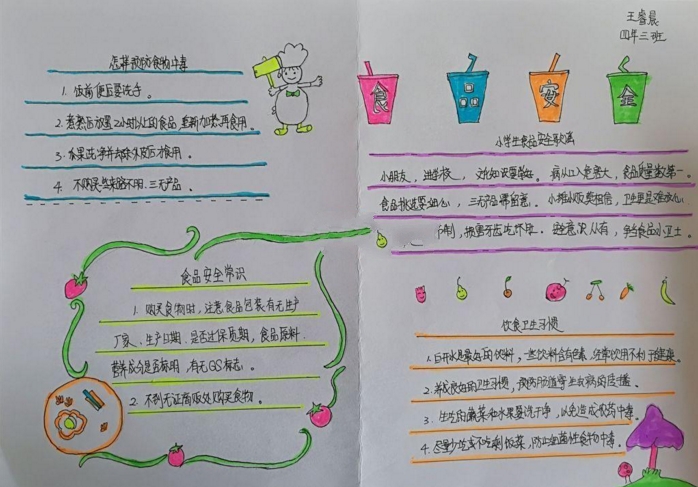 王睿晨
四年三班
怎样预防食物中毒
1. 饭前便后要洗手。
2. 煮熟后放置2小时以上的食品,重新加热再食用。
3. 水果洗净并去除外皮后才食用。
4. 不购买来路不明、三无产品。
食品安全
小学生食品安全歌谣
小朋友,进学校,文化知识要学好。病从口入危害大,食品质量数第一。
食品挑选要细心,三无产品要留意。小摊小贩莫相信,卫生质量难放心
食品安全常识
1. 购买食物时,注意食品包装有无生产
厂家、生产日期,是否过保质期,食品原料、
营养成分是否标明,有无QS标志。
2. 不到无证商贩处购买食物。
饮食卫生习惯
1. 白开水是最好的饮料,一些饮料含有色素,经常饮用不利于健康。
2. 养成良好的卫生习惯,预防肠道寄生虫病的传播。
3. 生吃的蔬菜和水果要洗干净,以免造成农药中毒。
4. 尽量少吃或不吃剩饭菜,防止细菌性食物中毒。